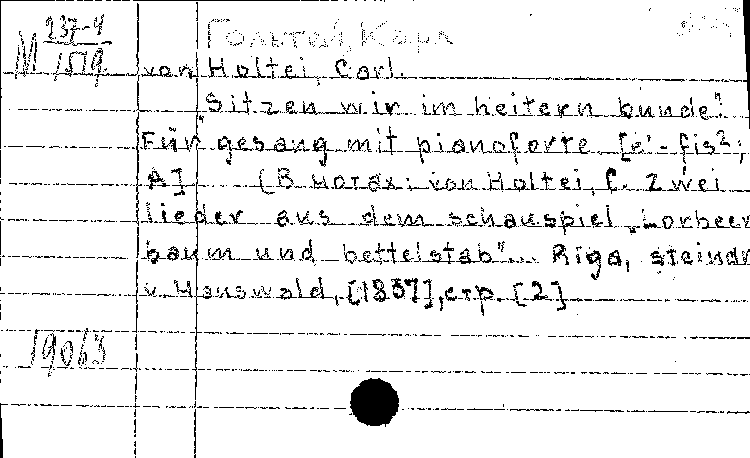 М 237-4 / 1519
Гольтей, Карл
von Holtei, Carl.
"Sitzen wir im heitern bunde".
Für gesang mit pianoforte [e¹-fis²;
A] (В нотах: von Holtei, C. Zwei
lieder aus dem schauspiel „Lorbeer
baum und bettelstab"... Riga, steindr
v. Hauswald, [1837], стр. [2]
19063